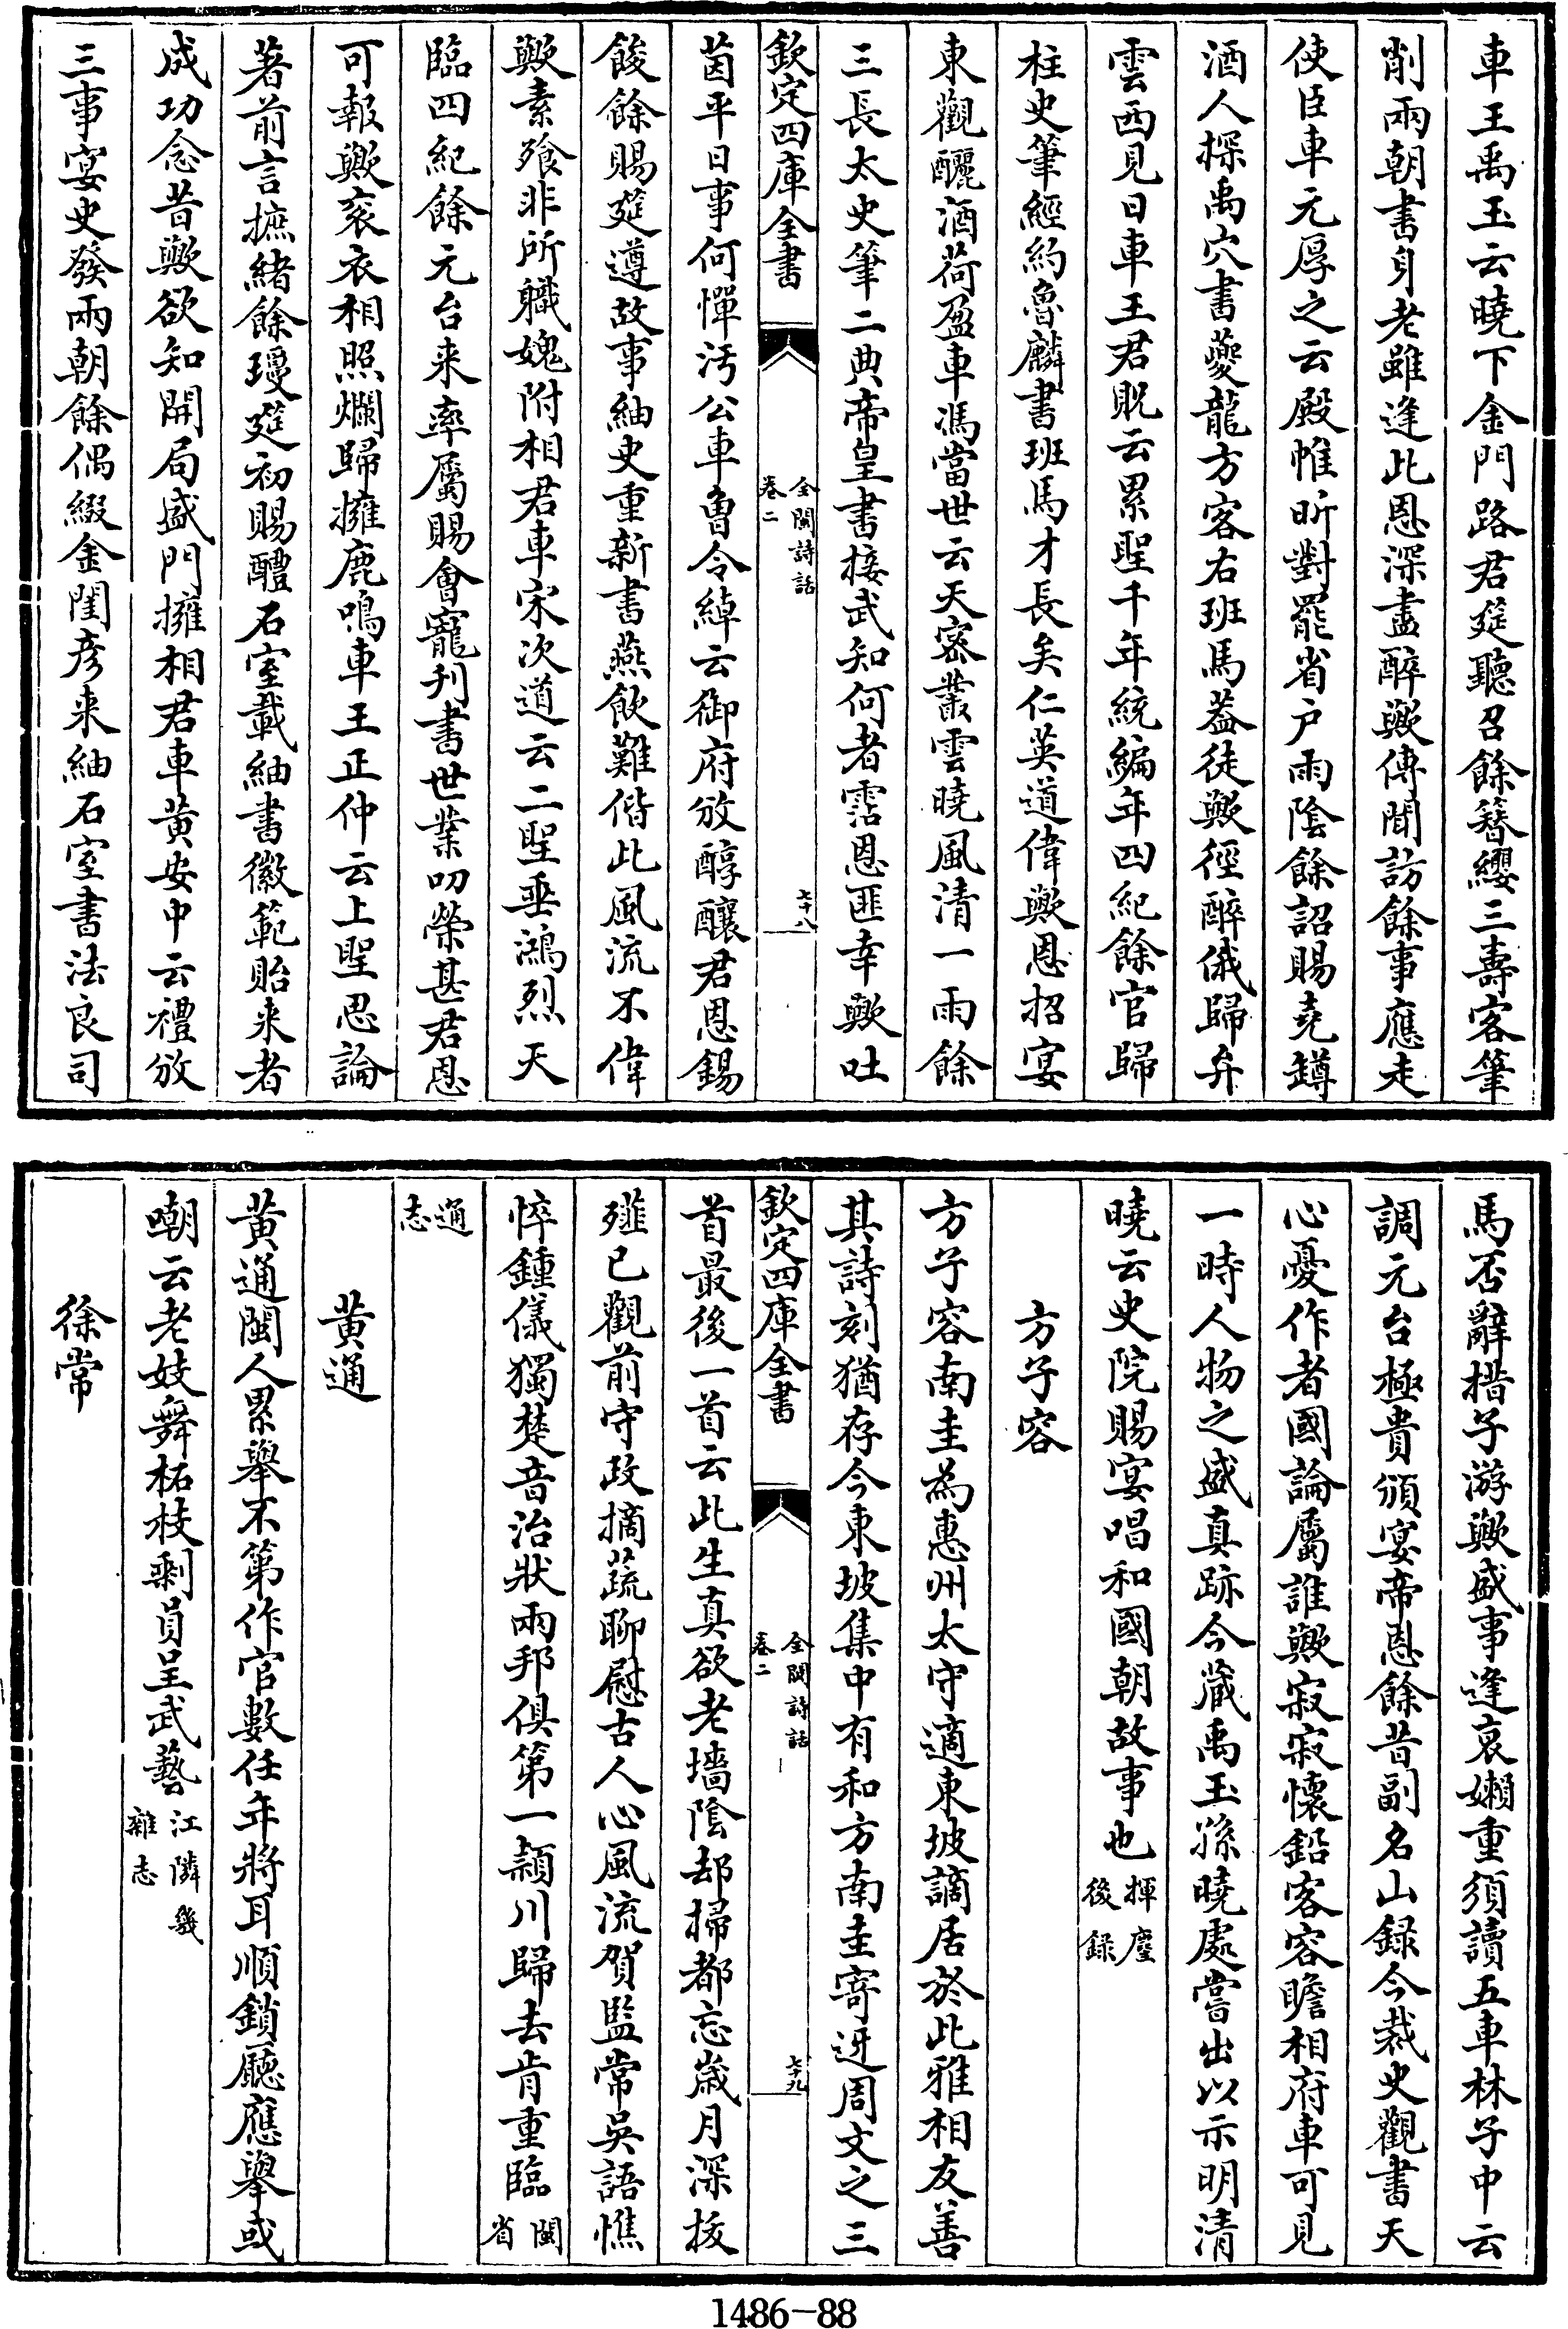 車王禹玉云曉下金門路君筵聽召餘簪纓三壽客筆
削兩朝書身老雖逢此恩深盡醉歟傳聞訪餘事應走
使臣車元厚之云殿帷昕對罷省户雨陰餘詔賜堯罇
酒人探禹穴書夔龍方客右班馬葢徒歟徑醉俄歸弁
雲西見日車王君貺云累聖千年統編年四紀餘官歸
柱史筆經約魯麟書班馬才長矣仁英道偉歟恩招宴
東觀釃酒荷盈車馮當世云天密叢雲曉風清一雨餘
三長太史筆二典帝皇書接武知何者霑恩匪幸歟吐
欽定四庫全書
全閩詩話
卷二
七十八
茵平日事何憚汚公車魯令綽云御府攽醇釀君恩錫
餕餘賜筵遵故事紬史重新書燕飲難偕此風流不偉
歟素飱非所職媿附相君車宋次道云二聖垂鴻烈天
臨四紀餘元台来率屬賜會寵刋書世業叨榮甚君恩
可報歟衮衣相照爛歸擁鹿鳴車王正仲云上聖思論
著前言摭緒餘璦筵初賜醴石室載紬書徽範貽来者
成功念昔歟欲知開局盛門擁相君車黄安中云禮攽
三事宴史發兩朝餘偶綴金閨彦来紬石室書法良司
馬否辭措子游歟盛事逢衰嬾重須讀五車林子中云
調元台極貴頒宴帝恩餘昔副名山録今裁史觀書天
心憂作者國論屬誰歟寂寂懷鉛客容瞻相府車可見
一時人物之盛真跡今藏禹玉孫曉處嘗出以示明清
曉云史院賜宴唱和國朝故事也揮麈
後録
方子容
方子容南圭為惠州太守適東坡謫居於此雅相友善
其詩刻猶存今東坡集中有和方南圭寄迓周文之三
欽定四庫全書
全閩詩話
卷二
七十九
首最後一首云此生真欲老墻陰却掃都忘歲月深拔
䪥已觀前守政摘蔬聊慰古人心風流賀監常吳語憔
悴鍾儀獨楚音治狀兩邦俱第一頴川歸去肯重臨閩
省
通
志
黄通
黄通閩人累舉不第作官數任年將耳順鎖廳應舉或
嘲云老妓舞柘枝剩員呈武藝江隣幾
雜志
徐常
1486-88